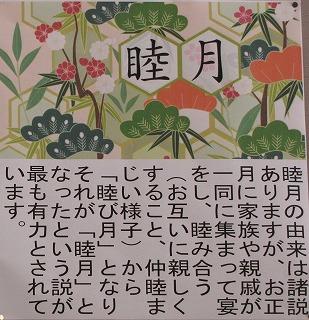 睦月
睦月の由来は諸説
ありますが、お正
月に家族や親戚が
一同に集まって宴
をし、睦み合う
（お互いに親しく
すること、仲睦ま
じい様子）から
「睦び月」となり
それが「睦月」と
なったという説が
最も有力とされて
います。